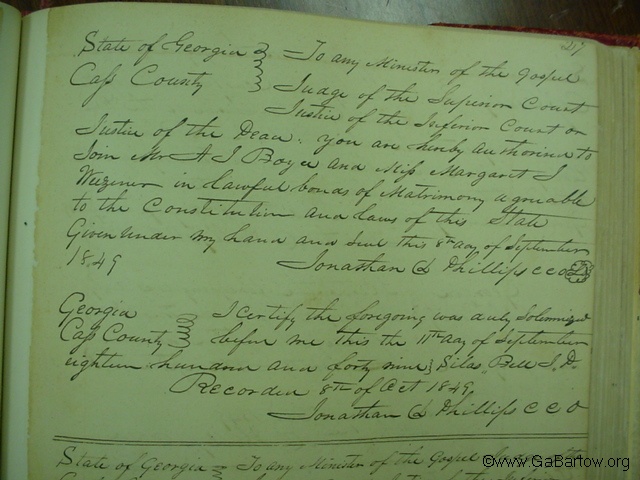 217
State of Georgia To any Minister of the Gospel
Cass County Judge of the Superior Court
Justice of the Inferior Court or
Justice of the Peace. you are hereby authorised to
Join Mr A J Boyce and Miss Margaret J
in lawful bonds of Matrimony agreeable
to the Constitution and laws of this State
Given under my hand and seal this 8th day of September
1849 Jonathan L Phillips C C O LS
Georgia I certify the foregoing was duly Solemnized
Cass County before me this the 11th day of September
eighteen hundred and forty nine Silas Bell J. P.
Recorded 8th of Oct 1849,
Jonathan L Phillips C C O
State of Georgia To any Minister of the Gospel
©www.GaBartow.org